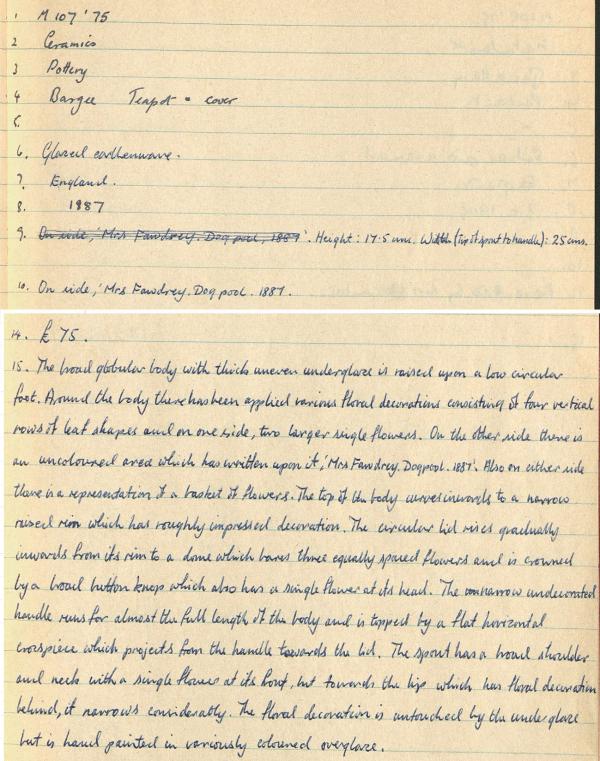 1 M 107 '75
2 Ceramics
3 Pottery
4 Bargee Teapot + cover
5.
6. Glazed earthenware.
7. England.
8. 1887
9. On side, 'Mrs Fawdrey. Dogpool, 1887'. Height: 17.5 cms. Width (tip of spout to handle): 25 cms.
10. On side, 'Mrs Fawdrey. Dogpool. 1887.
14. £75.
15. The broad globular body with thick uneven underglaze is raised upon a low circular
foot. Around the body there has been applied various floral decorations consisting of four vertical
rows of leaf shapes and on one side, two larger single flowers. On the other side there is
an uncoloured area which has written upon it, 'Mrs Fawdrey. Dogpool. 1887'. Also on either side
there is a representation of a basket of flowers. The top of the body curves inwards to a narrow
raised rim which has roughly impressed decoration. The circular lid rises gradually
inwards from its rim to a dome which bares three equally spaced flowers and is crowned
by a broad button knop which also has a single flower at its head. The narrow undecorated
handle runs for almost the full length of the body and is topped by a flat horizontal
crosspiece which projects from the handle towards the lid. The spout has a broad shoulder
and neck with a single flower at its front, but towards the lip which has floral decoration
behind, it narrows considerably. The floral decoration is untouched by the underglaze
but is hand painted in variously coloured overglaze.